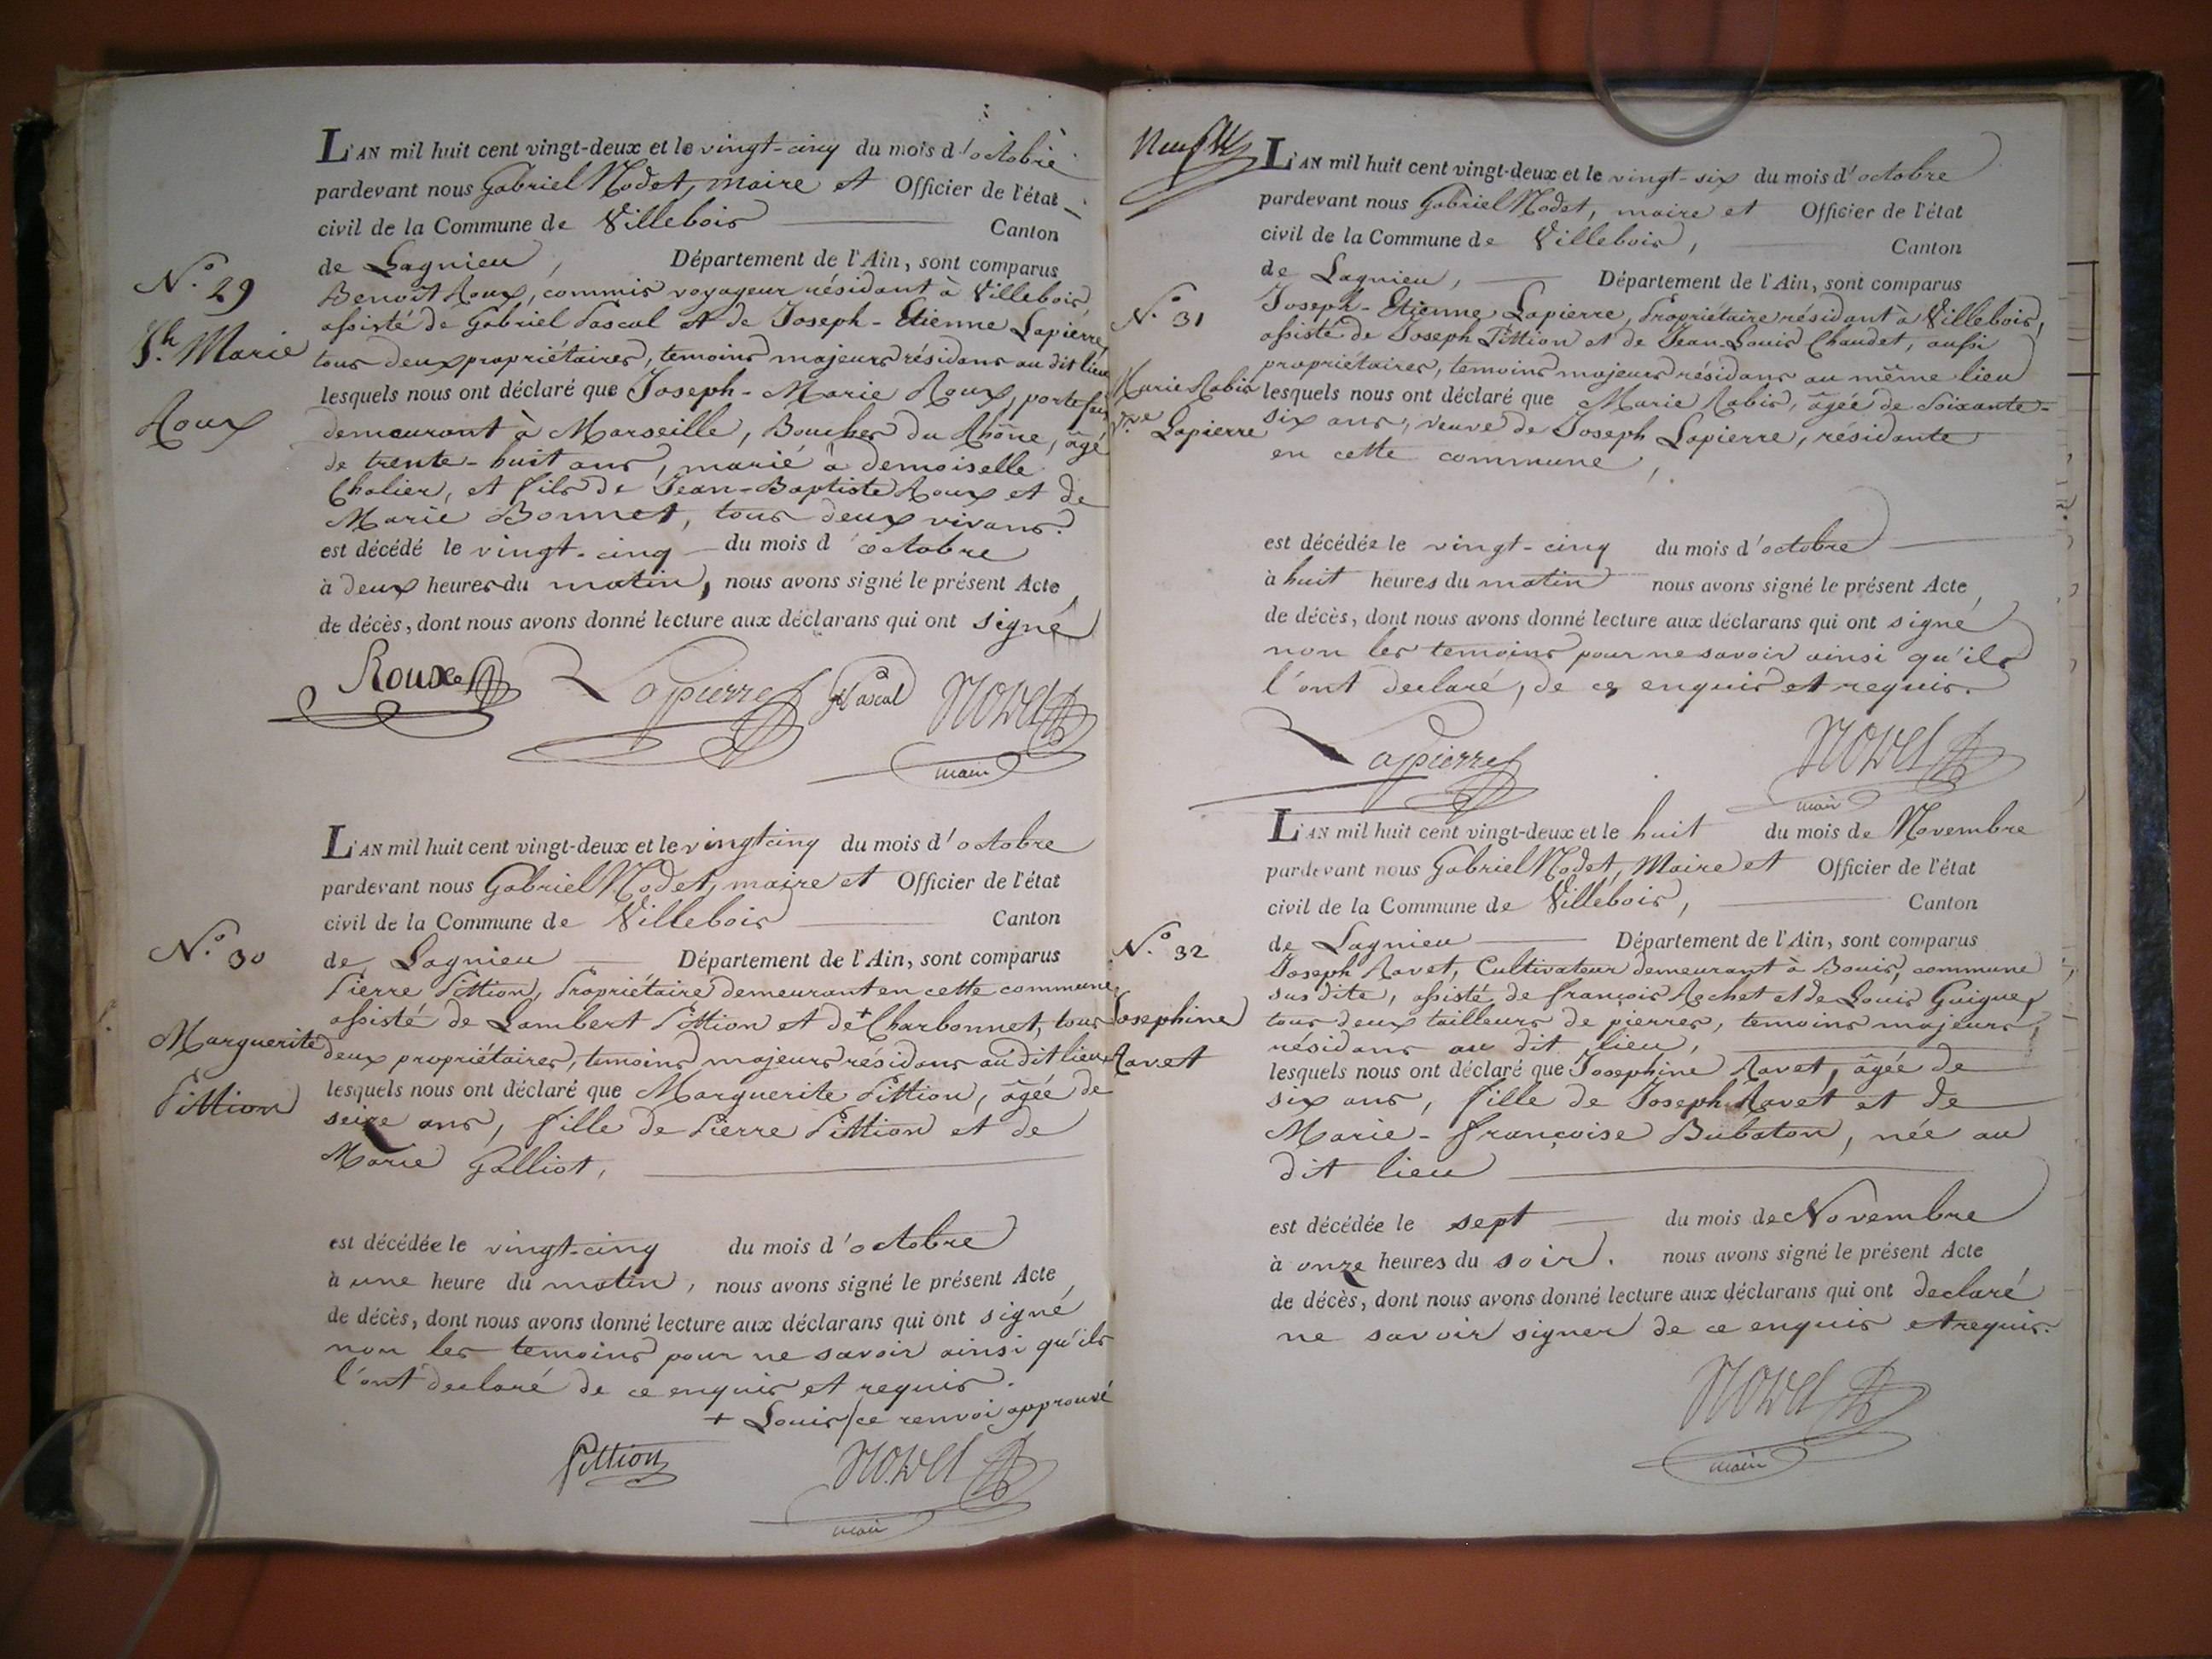 L'AN mil huit cent vingt-deux et le vingt-cinq du mois d'octobre
pardevant nous Gabriel Nodet, maire et Officier de l'état
civil de la Commune de Villebois Canton
de Lagnieu, Département de l'Ain, sont comparus
N.o 29
Benoît Roux, commis voyageur résidant à Villebois
assisté de Gabriel Pascal et de Joseph-Etienne Lapierre,
Jh. Marie
tous deux propriétaires, temoins majeurs résidans au dit lieu
lesquels nous ont déclaré que Joseph-Marie Roux, portefaix
Roux
demeurant à Marseille, Bouches du Rhône, âgé
de trente-huit ans, marié à demoiselle
Chalier, et fils de Jean-Baptiste Roux et de
Marie Bonnet, tous deux vivans.
est décédé le vingt-cinq du mois d'octobre
à deux heures du matin, nous avons signé le présent Acte
de décès, dont nous avons donné lecture aux déclarans qui ont signé
Roux Lapierre Pascal Nodet
maire
L'AN mil huit cent vingt-deux et le vingt cinq du mois d'octobre
pardevant nous Gabriel Nodet, maire et Officier de l'état
civil de la Commune de Villebois Canton
N.o 30
de Lagnieu Département de l'Ain, sont comparus
Pierre Pittion, Propriétaire demeurant en cette commune,
assisté de Lambert Pittion et de + Charbonnet, tous
Marguerite
deux propriétaires, temoins majeurs résidans au dit lieu
lesquels nous ont déclaré que Marguerite Pittion, âgée de
Pittion
seize ans, fille de Pierre Pittion et de
Marie Galliot,
est décédée le vingt-cinq du mois d'octobre
à une heure du matin, nous avons signé le présent Acte
de décès, dont nous avons donné lecture aux déclarans qui ont signé
non les temoins pour ne savoir ainsi qu'ils
l'ont declaré de ce enquis et requis.
+ Louis / ce renvoi approuvé
Pittion Nodet
maire
L'AN mil huit cent vingt-deux et le vingt-six du mois d'octobre
pardevant nous Gabriel Nodet, maire et Officier de l'état
civil de la Commune de Villebois, Canton
de Lagnieu, Département de l'Ain, sont comparus
N.o 31
Joseph-Etienne Lapierre, Propriétaire résidant à Villebois,
assisté de Joseph Pittion et de Jean-Louis Chaudet, aussi
propriétaires, temoins majeurs résidans au même lieu
Marie Rabis
lesquels nous ont déclaré que Marie Rabis, âgée de soixante-
Vve Lapierre
six ans, veuve de Joseph Lapierre, résidante
en cette commune,
est décédée le vingt-cinq du mois d'octobre
à huit heures du matin nous avons signé le présent Acte
de décès, dont nous avons donné lecture aux déclarans qui ont signé
non les temoins pour ne savoir ainsi qu'ils
l'ont declaré, de ce enquis et requis.
Lapierre Nodet
maire
L'AN mil huit cent vingt-deux et le huit du mois de Novembre
pardevant nous Gabriel Nodet, Maire et Officier de l'état
civil de la Commune de Villebois, Canton
N.o 32
de Lagnieu Département de l'Ain, sont comparus
Joseph Ravet, Cultivateur demeurant à Bouis, commune
sus dite, assisté de françois Rechet et de Louis Guigue,
Josephine
tous deux tailleurs de pierres, temoins majeurs,
résidans au dit lieu,
Ravet
lesquels nous ont déclaré que Josephine Ravet, âgée de
six ans, fille de Joseph Ravet et de
Marie-françoise Bubaton, née au
dit lieu
est décédée le sept du mois de Novembre
à onze heures du soir. nous avons signé le présent Acte
de décès, dont nous avons donné lecture aux déclarans qui ont declaré
ne savoir signer de ce enquis et requis.
Nodet
maire